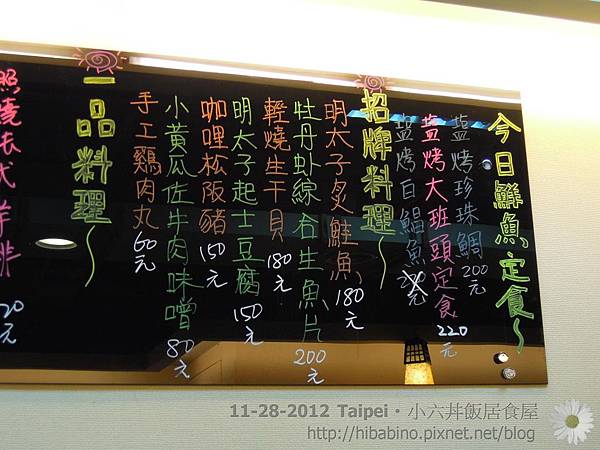 今日鮮魚定食~
盐烤珍珠鯛 200元
盐烤大班頭定食 220元
盐烤白鯧魚
招牌料理~
明太子炙鮭魚 180元
牡丹虾綜合生魚片 200元
輕燒生干貝 180元
明太子起士豆腐 150元
咖哩松阪豬 150元
小黃瓜佐牛肉味噌 80元
手工鷄肉丸 60元
一品料理~
照燒法式羊排
20元
11-28-2012 Taipei・小六丼飯居食屋
http://hibabino.pixnet.net/blog